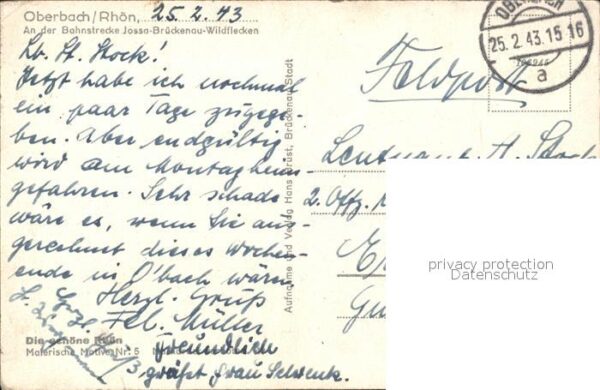 Oberbach/Rhön, 25.2.43
An der Bahnstrecke Jossa-Brückenau-Wildflecken
Lb. Lt. Stock!
Jetzt habe ich nochmal
ein paar Tage zugege-
ben. Aber endgültig
wird am Montag heim-
gefahren. Sehr schade
wäre es, wenn Sie aus-
gerechnet dieses Wochen-
ende in O'bach wären.
Herzl. Gruß
Frl. Müller
Freundlich
grüßt Frau Schwenk.
Die schöne Rhön
Malerische Motive Nr. 5
Aufnahme und Verlag Hans Brüst, Brückenau-Stadt
25.2.43.15 16
a
Feldpost
Leutnant H. Stock
2. Offz.
privacy protection
Datenschutz